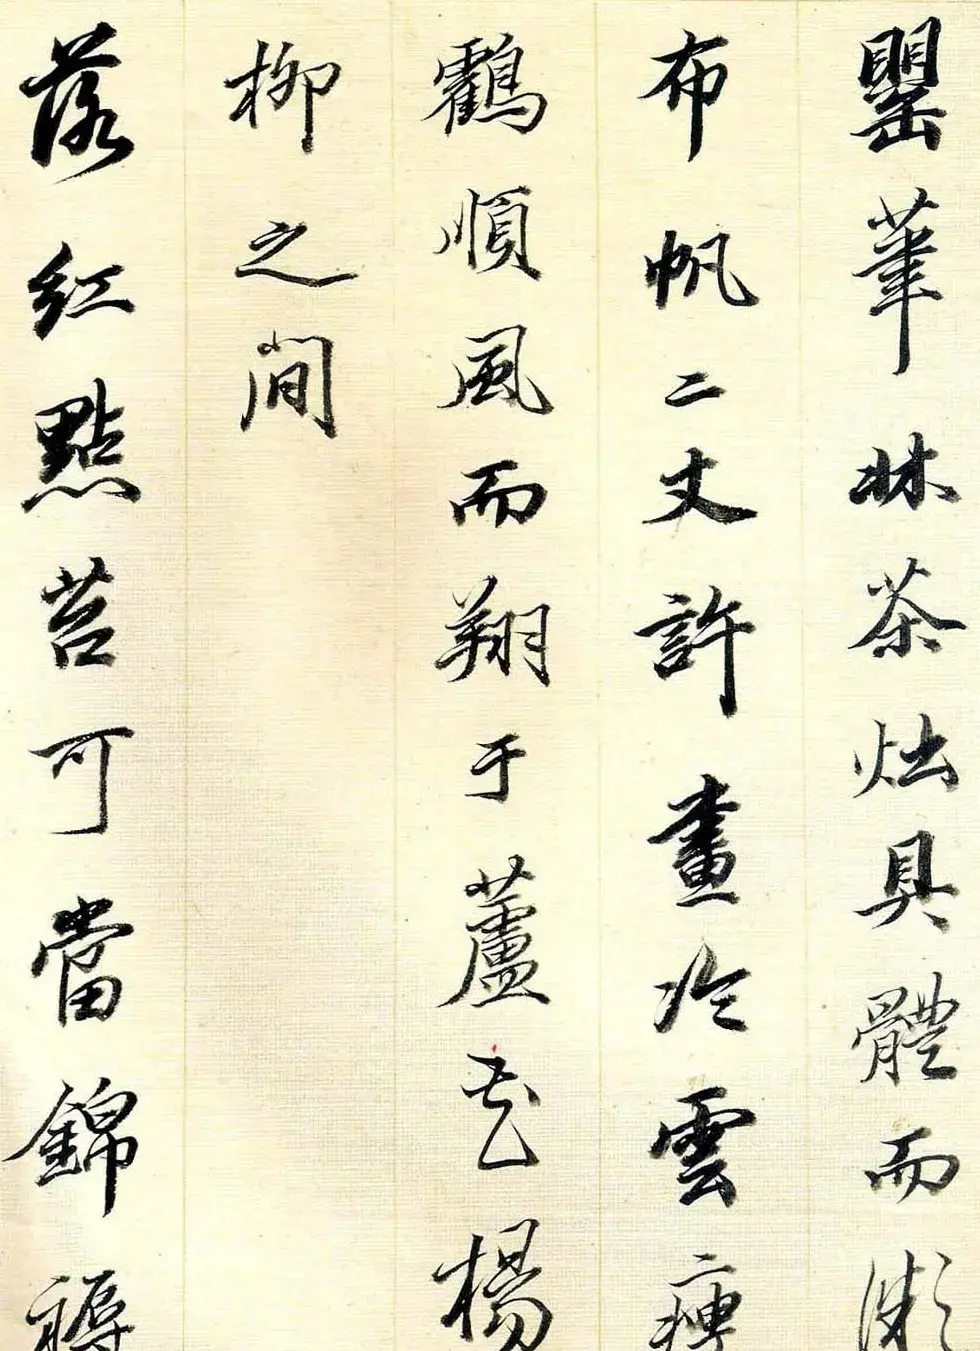 罌筆牀茶炷具體而微
布帆二丈許畫冷雲痩
鸖順風而翔于蘆花楊
柳之間
落紅點苔可當錦褥